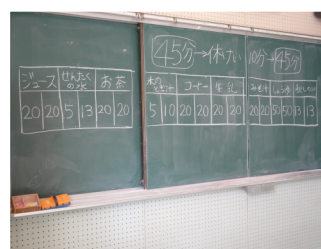 45分→休けい10分→45分
ジュース せんたくの水 お茶
20 20 5 13 20 20
コーヒー 牛乳
5 10 20 20 20 20
みそ汁 しょうゆ
20 20 50 50 13 13